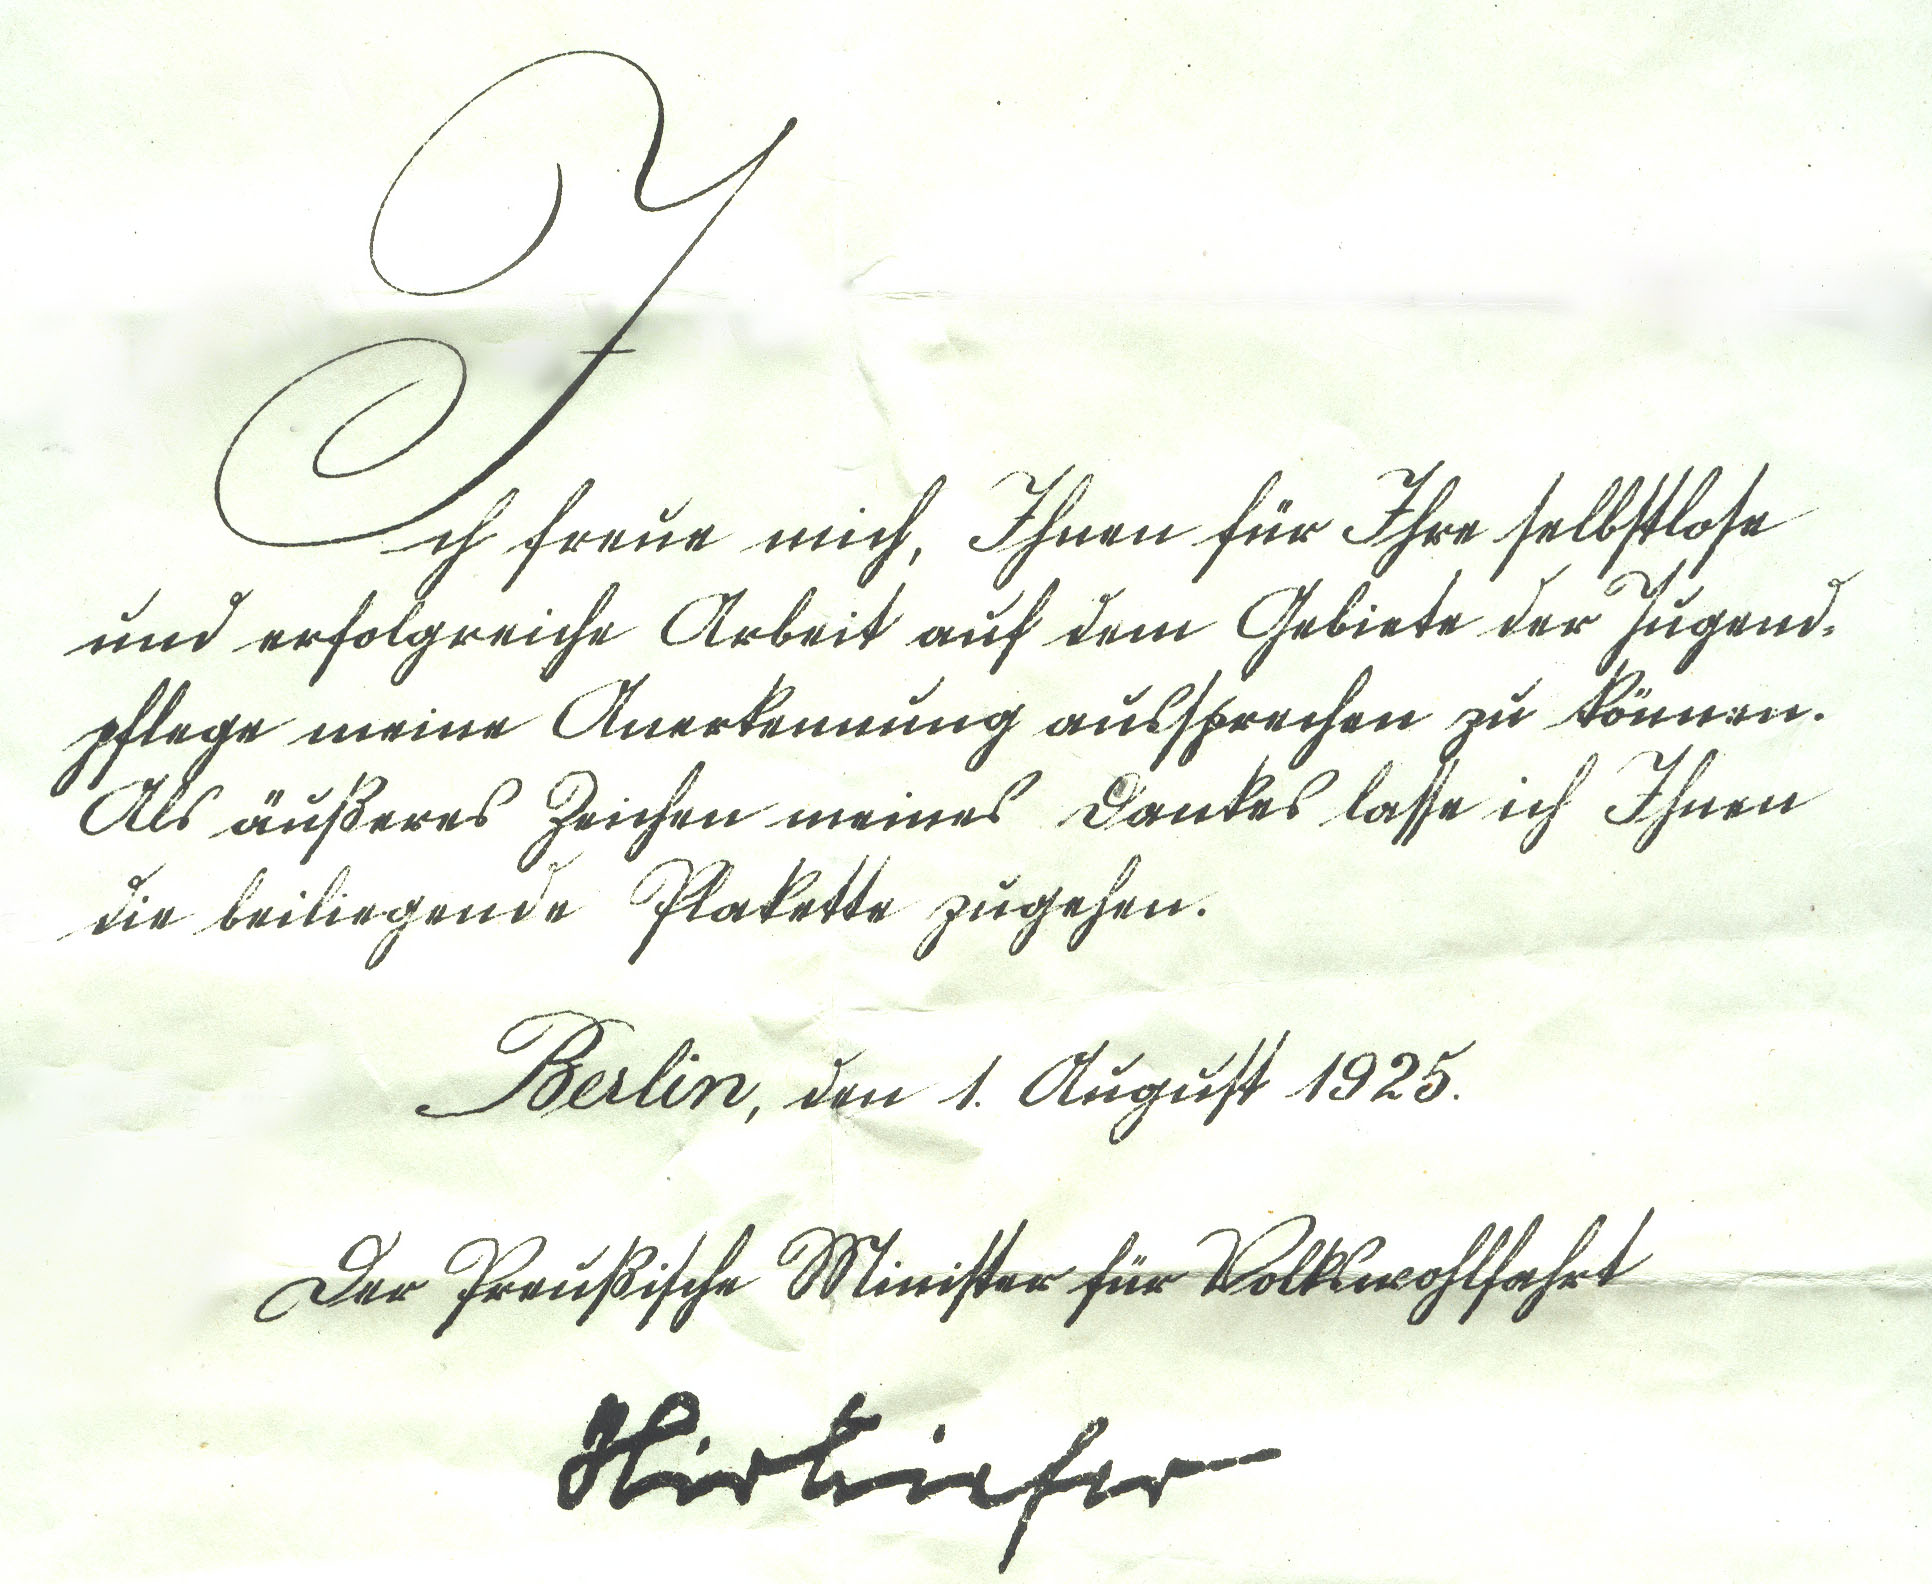 Ich freue mich, Ihnen für Ihre selbstlose
und erfolgreiche Arbeit auf dem Gebiete der Jugend-
pflege meine Anerkennung aussprechen zu können.
Als äußeres Zeichen meines Dankes lasse ich Ihnen
die beiliegende Plakette zugehen.
Berlin, den 1. August 1925.
Der Preußische Minister für Volkswohlfahrt
Hirtsiefer